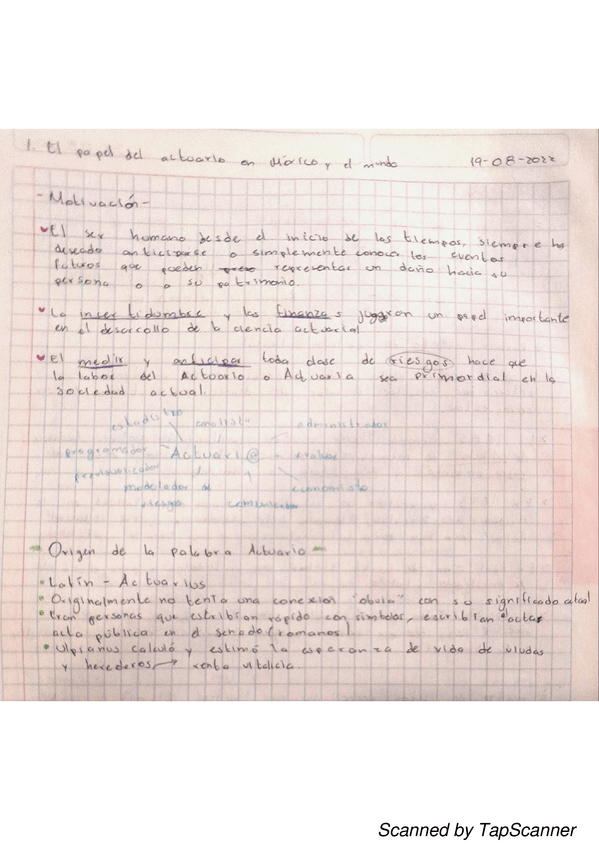 1. El papel del actuario en México y el mundo 19-08-2022
- Motivación -
El ser humano desde el inicio de los tiempos, siempre ha
deseado anticiparse o simplemente conocer los eventos
futuros que pueden representar un daño hacia su
persona o a su patrimonio.
La incertidumbre y las finanzas jugaron un papel importante
en el desarrollo de la ciencia actuarial
El medir y anticipar toda clase de riesgos hace que
la labor del Actuario o Actuaria sea primordial en la
sociedad actual.
estadístico analista administrador
programador Actuari@ evaluar
previsualizador
modelador de economista
riesgo
Origen de la palabra Actuario
Latín - Actuarius
Originalmente no tenía una conexión "obvia" con su significado actual
Eran personas que escribían rápido con símbolos, escribían "actas
acta pública en el senado (romanos).
Ulpianus calculó y estimó la esperanza de vida de viudas
y herederos → renta vitalicia.